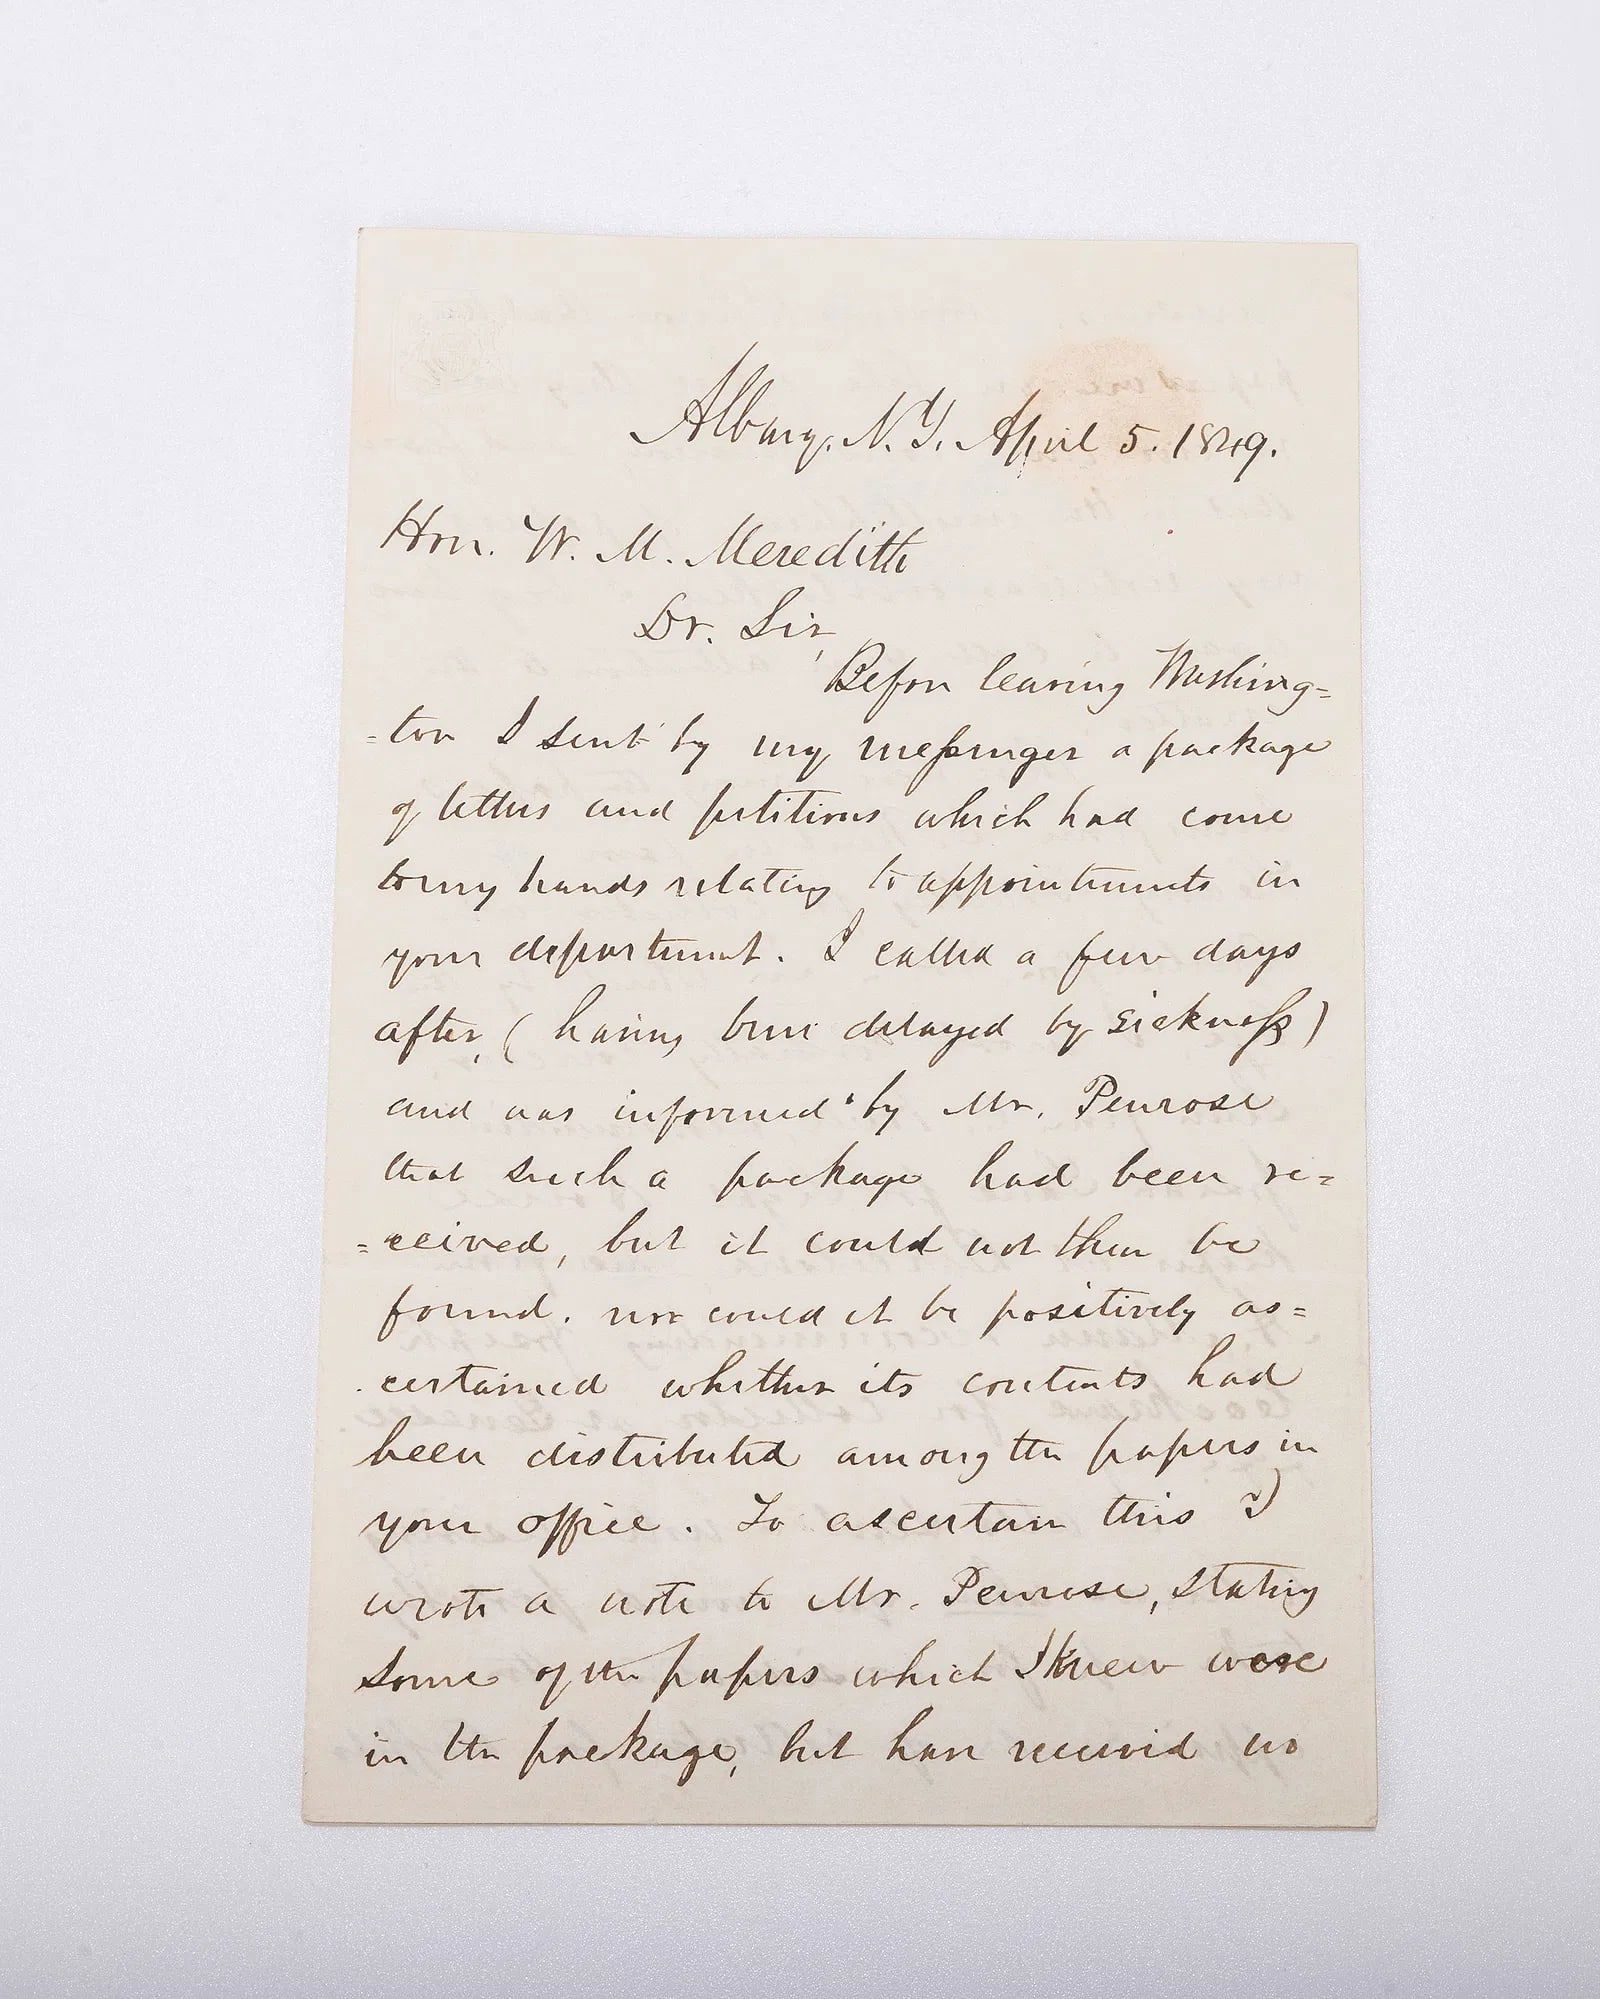 Albany, N.Y. April 5. 1849.
Hon. W. M. Meredith
Dr. Sir,
Before leaving Washing=
=ton I sent by my messenger a package
of letters and petitions which had come
to my hands relating to appointments in
your department. I called a few days
after, (having been delayed by sickness)
and was informed by Mr. Penrose
that such a package had been re=
=ceived, but it could not then be
found. nor could it be positively as=
certained whether its contents had
been distributed among the papers in
your office. To ascertain this I
wrote a note to Mr. Penrose, stating
some of the papers which I knew were
in the package, but have received no